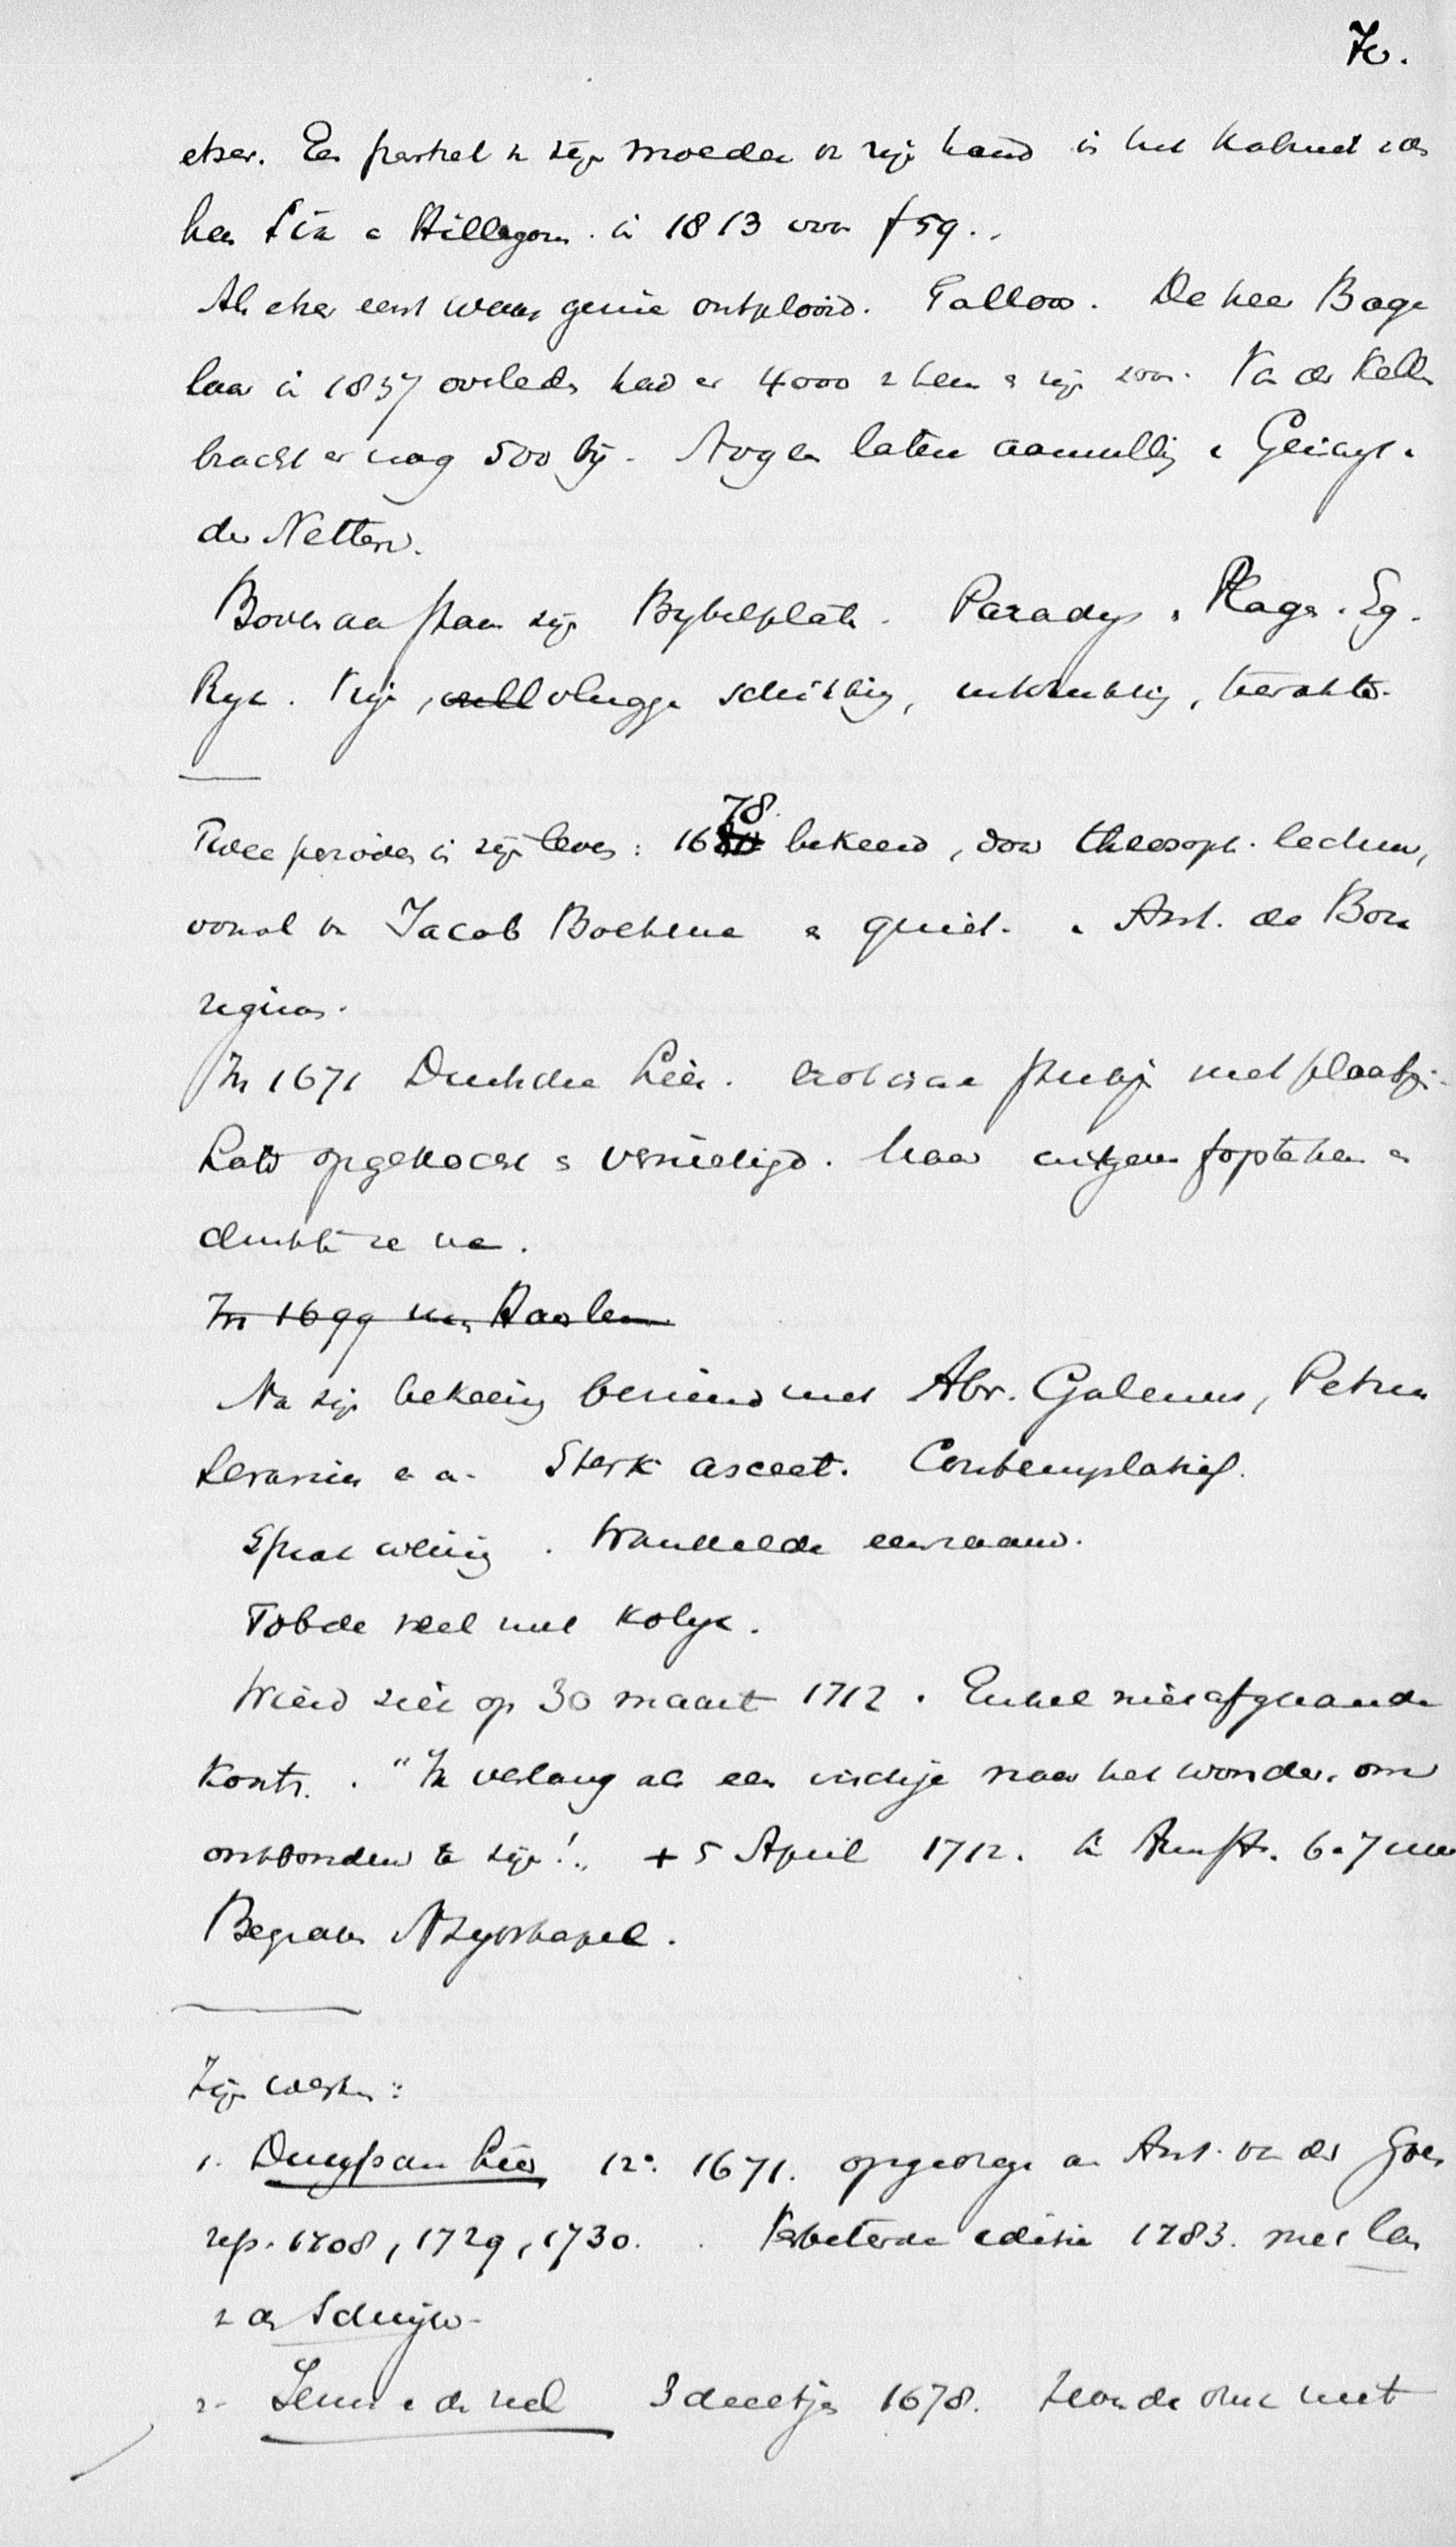 70.
etser. Een portret v zijn moeder v zijn hand in het Kabinet v d
heer Six a Hillegom. in 1813 voor f 59..
Als etser eerst waar genie ontplooid. Callow. De heer Bage
laar in 1837 overleden had er 4000 v hem & zijn zoon. Van der Kell
bracht er nog 500 bij. Nog en laten aanvulling v
der Netten.
Bovenaan staan zijn Bybelplaten. Paradys, Plage. Eg.
Ryk. Vrije, vlugge schikking, uitdrukking, karakter.
Twee perioden in zijn leven: 1678. bekeerd, door theosoph. lectuur,
vooral v Jacob Boehme & quiet. Ant. de Bou
rignon.
In 1671 Duitsche Lier. erotische stukje met plaatjes.
Laat opgekocht & vernietigd. Maar uitgever fopte hem &
drukte ze na.
In 1699 naar Haarlem
Na zijn bekeering bevriend met Abr. Galenus, Petrus
Serarius e. a. Sterk asceet. Contemplatief.
Sprak weinig. Wandelde eenzaam.
Tobde veel met kolyk.
Wierd ziek op 30 maart 1712. Enkel nietafgaande
Koorts. "Ik verlang als een vischje naar het wonder, om
ontbonden te zijn!" + 5 April 1712. in Amst. 6.7 uur
Begraven N Zyskapel.
Zijn werken:
1. Duytsche Lier 12°. 1671. opgedrage a Ant. van der Goes
rep. 1708, 1729, 1730. Verbeterde editie 1783. met
2. 3 deeltjes 1678. met